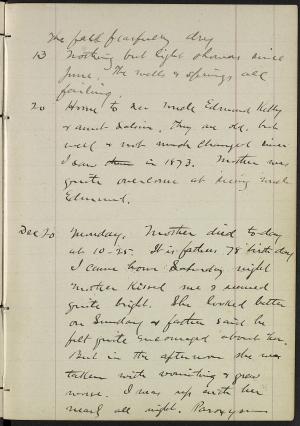 The fall fearfully dry
13 Nothing but light showers since
June. The wells & springs all
failing.
20 Home to see Uncle Edmund Kelly
& aunt They are old, but
well & not much changed since
I saw them in 1873. Mother was
quite overcome at seeing uncle
Edmund.
Dec 20 Monday. Mother died to-day
at 10-25. It is fathers 78 birthday
I came home Saturday night
Mother kissed me & seemed
quite bright. She looked better
on Sunday & father said he
felt quite encouraged about her.
But in the afternoon she was
taken with vomiting & grew
worse. I was up with her
nearly all night. Paroxysm